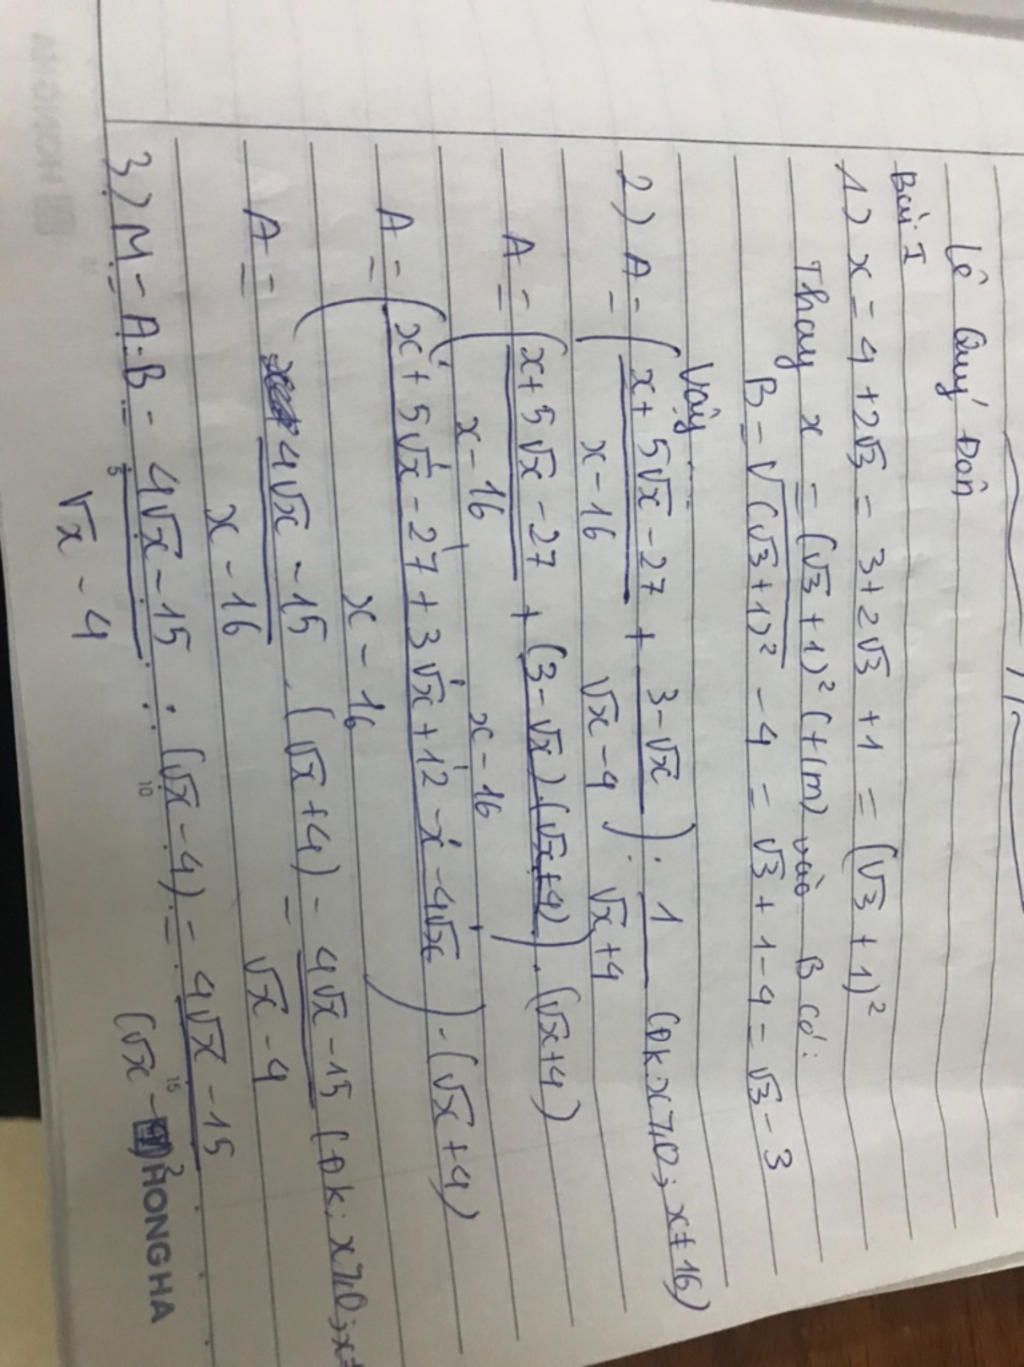 Lê Quý Đôn
Bài I
1) x = 4 + 2√3 = 3 + 2√3 + 1 = (√3 + 1)²
Thay x = (√3 + 1)² (t/m) vào B có:
B = √(√3+1)² - 4 = √3 + 1 - 4 = √3 - 3
Vậy ...
2) A = ( (x + 5√x - 27)/(x - 16) + (3 - √x)/(√x - 4) ) : 1/(√x + 4) (Đk: x ≥ 0; x ≠ 16)
A = ( (x + 5√x - 27)/(x - 16) + (3 - √x).(√x + 4)/(x - 16) ) . (√x + 4)
A = ( (x + 5√x - 27 + 3√x + 12 - x - 4√x)/(x - 16) ) . (√x + 4)
A = (4√x - 15)/(x - 16) . (√x + 4) = (4√x - 15)/(√x - 4) (Đk: x ≥ 0; x ≠
3) M = A:B = (4√x - 15)/(√x - 4) : (√x - 4) = (4√x - 15)/(√x - 4)²
5 10 15
HONG HA